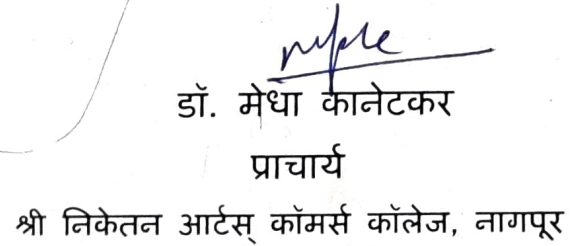 डॉ. मेधा कानेटकर
प्राचार्य
श्री निकेतन आर्टस् कॉमर्स कॉलेज, नागपूर